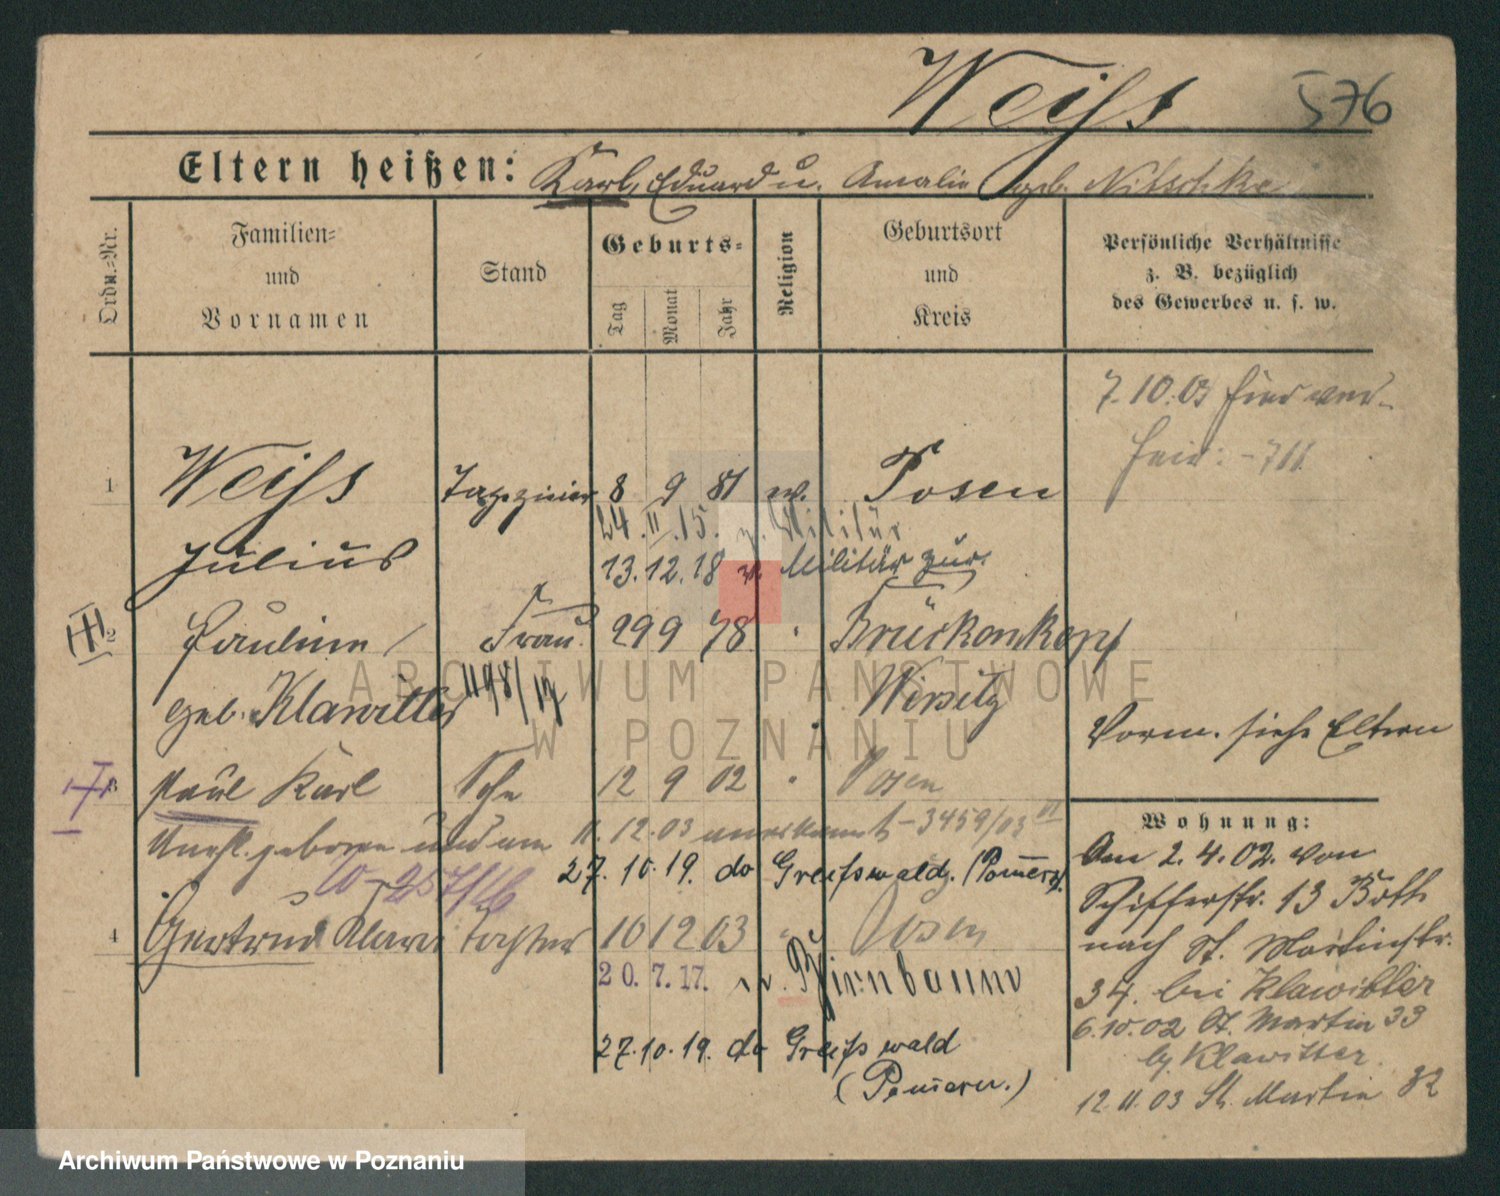 Weiss 576
Eltern heißen: Karl, Eduard u. Amalie geb. Nitschke
Ordn.-Nr.
Familien-
und
Vornamen
Stand
Geburts-
Tag
Monat
Jahr
Religion
Geburtsort
und
Kreis
Persönliche Verhältnisse
z. B. bezüglich
des Gewerbes u. s. w.
7.10.03
1 Weiss Tapezierer 8 9 81 ev. Posen
24.11.15. z. Militär
Julius 13.12.18 v. Militär zur.
2 Pauline Frau 29 9 78 " Brückenkopf
geb. Klawitter 1198/17 Wirsitz
Vorm. siehe Eltern
3 Paul Karl Sohn 12 9 02 " Posen
Unehl. geboren und am 11.12.03 anerkannt - 3459/03 VI
27.10.19. do Greifswald. (Pommern).
4 Gertrud Klara Tochter 10 12 03 " Posen
20.7.17. n. Birnbaum
27.10.19. do Greifswald
(Pommern.)
Wohnung:
Am 2.4.02. von
Schifferstr. 13
nach St. Martinstr.
34. bei Klawitter
6.10.02 St. Martin 33
by Klawitter
12.11.03 St. Martin 32
ARCHIWUM PAŃSTWOWE
W POZNANIU
Archiwum Państwowe w Poznaniu